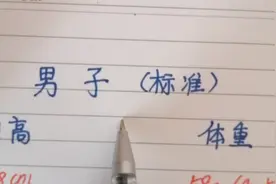 男子(标准)
高 体重